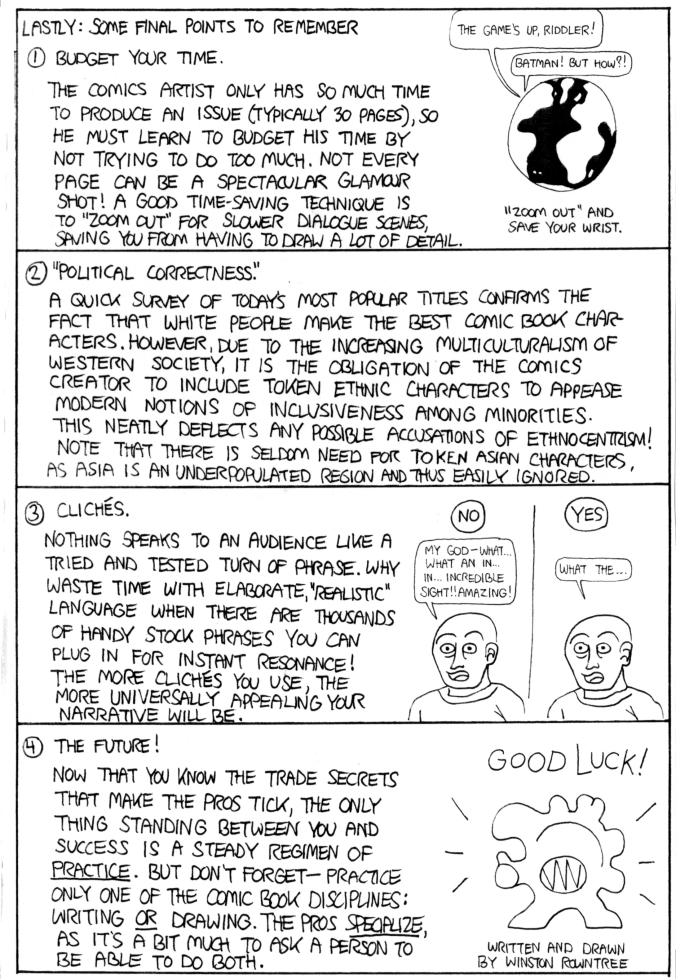 LASTLY: SOME FINAL POINTS TO REMEMBER
① BUDGET YOUR TIME.
THE COMICS ARTIST ONLY HAS SO MUCH TIME
TO PRODUCE AN ISSUE (TYPICALLY 30 PAGES), SO
HE MUST LEARN TO BUDGET HIS TIME BY
NOT TRYING TO DO TOO MUCH. NOT EVERY
PAGE CAN BE A SPECTACULAR GLAMOUR
SHOT! A GOOD TIME-SAVING TECHNIQUE IS
TO "ZOOM OUT" FOR SLOWER DIALOGUE SCENES,
SAVING YOU FROM HAVING TO DRAW A LOT OF DETAIL.
THE GAME'S UP, RIDDLER!
BATMAN! BUT HOW?!
"ZOOM OUT" AND
SAVE YOUR WRIST.
② "POLITICAL CORRECTNESS."
A QUICK SURVEY OF TODAY'S MOST POPULAR TITLES CONFIRMS THE
FACT THAT WHITE PEOPLE MAKE THE BEST COMIC BOOK CHAR-
ACTERS. HOWEVER, DUE TO THE INCREASING MULTICULTURALISM OF
WESTERN SOCIETY, IT IS THE OBLIGATION OF THE COMICS
CREATOR TO INCLUDE TOKEN ETHNIC CHARACTERS TO APPEASE
MODERN NOTIONS OF INCLUSIVENESS AMONG MINORITIES.
THIS NEATLY DEFLECTS ANY POSSIBLE ACCUSATIONS OF ETHNOCENTRISM!
NOTE THAT THERE IS SELDOM NEED FOR TOKEN ASIAN CHARACTERS,
AS ASIA IS AN UNDERPOPULATED REGION AND THUS EASILY IGNORED.
③ CLICHÉS.
NOTHING SPEAKS TO AN AUDIENCE LIKE A
TRIED AND TESTED TURN OF PHRASE. WHY
WASTE TIME WITH ELABORATE, "REALISTIC"
LANGUAGE WHEN THERE ARE THOUSANDS
OF HANDY STOCK PHRASES YOU CAN
PLUG IN FOR INSTANT RESONANCE!
THE MORE CLICHÉS YOU USE, THE
MORE UNIVERSALLY APPEALING YOUR
NARRATIVE WILL BE.
NO
MY GOD—WHAT...
WHAT AN IN...
IN... INCREDIBLE
SIGHT!! AMAZING!
YES
WHAT THE....
④ THE FUTURE!
NOW THAT YOU KNOW THE TRADE SECRETS
THAT MAKE THE PROS TICK, THE ONLY
THING STANDING BETWEEN YOU AND
SUCCESS IS A STEADY REGIMEN OF
PRACTICE. BUT DON'T FORGET— PRACTICE
ONLY ONE OF THE COMIC BOOK DISCIPLINES:
WRITING OR DRAWING. THE PROS SPECIALIZE,
AS IT'S A BIT MUCH TO ASK A PERSON TO
BE ABLE TO DO BOTH.
GOOD LUCK!
WRITTEN AND DRAWN
BY WINSTON ROWNTREE